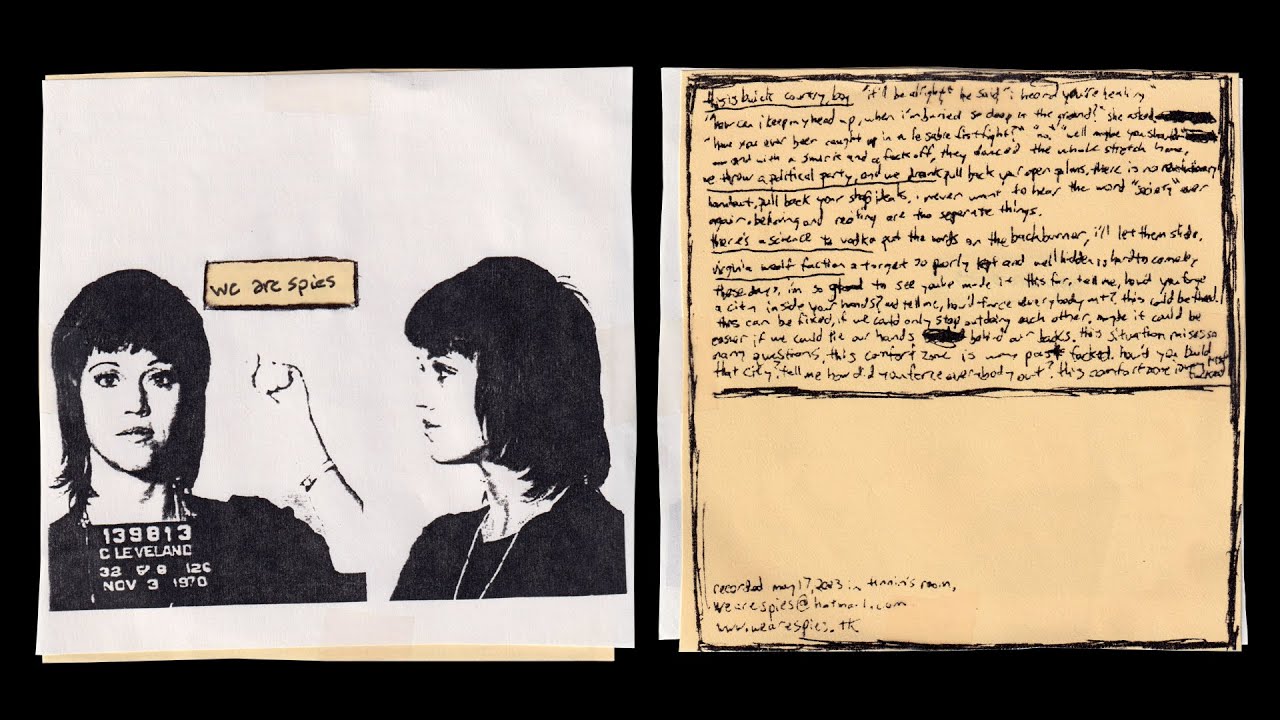 we are spies
139813
CLEVELAND
32 5/8 126
NOV 3 1970
this is buick country, boy "it'll be alright" he said "i heard you're healing"
"how can i keep my head up, when i'm buried so deep in the ground?" she asked
"have you ever been caught up in a le sabre fistfight?" "no" "well maybe you should"
and with a smirk and a fuck off, they danced the whole stretch home,
we threw a political party, and we drank pull back your open palms, there is no revolutionary
handout, pull back your ideals, i never want to hear the word "society" ever
again. believing and reciting are two separate things.
there's a science to vodka put the words on the backburner, i'll let them slide.
virginia woolf faction a target so poorly kept and well hidden is hard to come by
these days, i'm so glad to see you've made it this far, tell me, how'd you forge
a city inside your hands? and tell me, how'd force everybody out? this could be
this can be fixed, if we could only stop outdoing each other, maybe it could be
easier if we could tie our hands behind our backs. this situation raises so
many questions, this comfort zone is way past fucked. how'd you build
that city? tell me how did you force everybody out? this comfort zone is way past fucked
recorded may 17, 2003 in room,
wearespies@hotmail.com
www.wearespies.tk